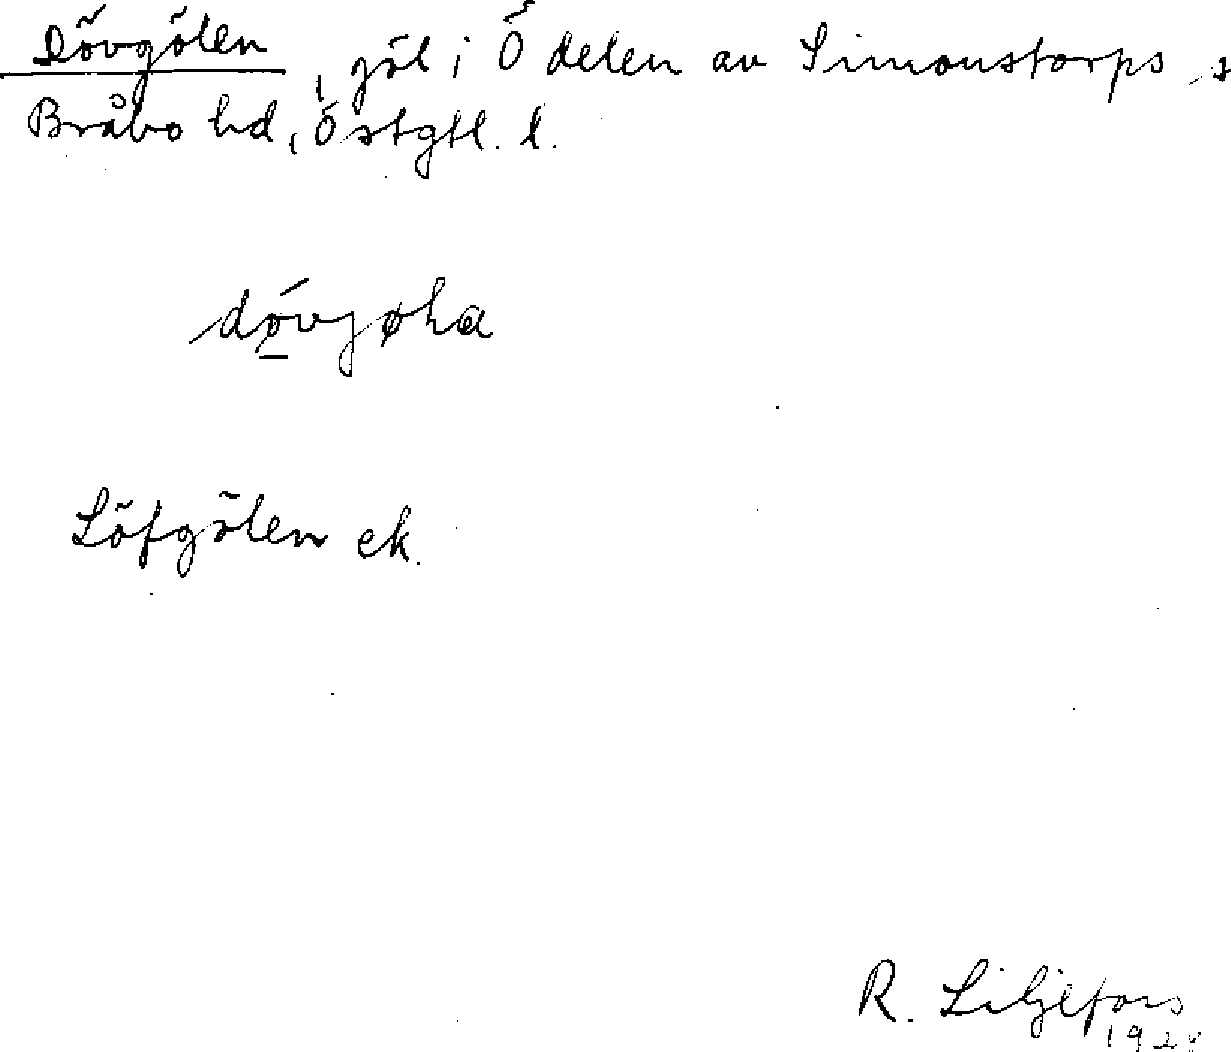 Dövgölen, göl i Ö delen av Simonstorps s
Bråbo hd, Östgtl. l.
Löfgölen ek.
R. Liljefors